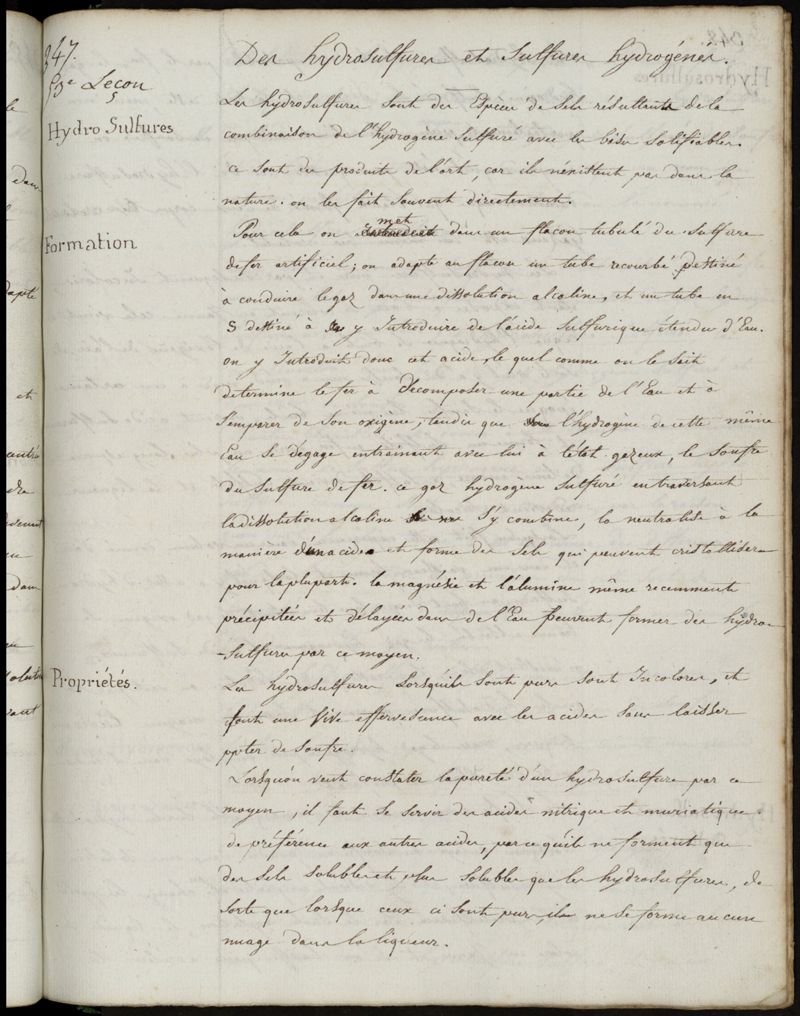 347.
Des hydrosulfures et Sulfures hydrogénés.
53e Leçon
Hydro Sulfures
Les hydrosulfures sont des Espèces de Sels résultants de la
combinaison de l'hydrogène Sulfuré avec les bases Salifiables.
ce sont des produits de l'art, car ils n'existent pas dans la
nature. on les fait Souvent directement.
Formation
Pour cela on met dans un flacon tubulé du Sulfure
de fer artificiel; on adapte au flacon un tube recourbé Destiné
à conduire le gaz dans une dissolution alcaline, et un tube en
S destiné à y Introduire de l'acide Sulfurique étendu d'Eau.
on y Introduit donc cet acide, le quel comme on le Sait
determine le fer à Décomposer une partie de l'Eau et à
S'emparer de Son oxigène, tandis que l'hydrogène de cette même
Eau Se dégage entrainant avec lui à l'état gazeux, le Soufre
du Sulfure de fer. ce gaz hydrogène Sulfuré en traversant
la dissolution alcaline S'y combine, la neutralise à la
manière d'un acide et forme des Sels qui peuvent cristallisér
pour la plupart. la magnésie et l'alumine même recemment
précipitées et délayées dans de l'Eau peuvent former des hydro-
-Sulfures par ce moyen.
Propriétés.
Les hydrosulfures Lorsqu'ils Sont purs sont Incolores, et
font une Vive effervescence avec les acides Sans laisser
ppter de Soufre.
Lorsqu'on veut constater la pureté d'un hydrosulfure par ce
moyen, il faut Se Servir des acides nitrique et muriatique
de préférence aux autres acides, parce qu'ils ne forment que
des Sels Solubles et plus Solubles que les hydrosulfures, de
Sorte que lorsque ceux ci Sont purs, il ne Se forme aucun
nuage dans la liqueur.